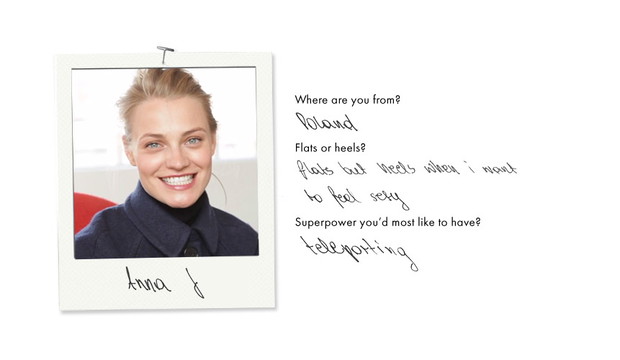 Where are you from?
Poland
Flats or heels?
flats but heels when i want
to feel sexy
Superpower you'd most like to have?
teleporting
Anna J